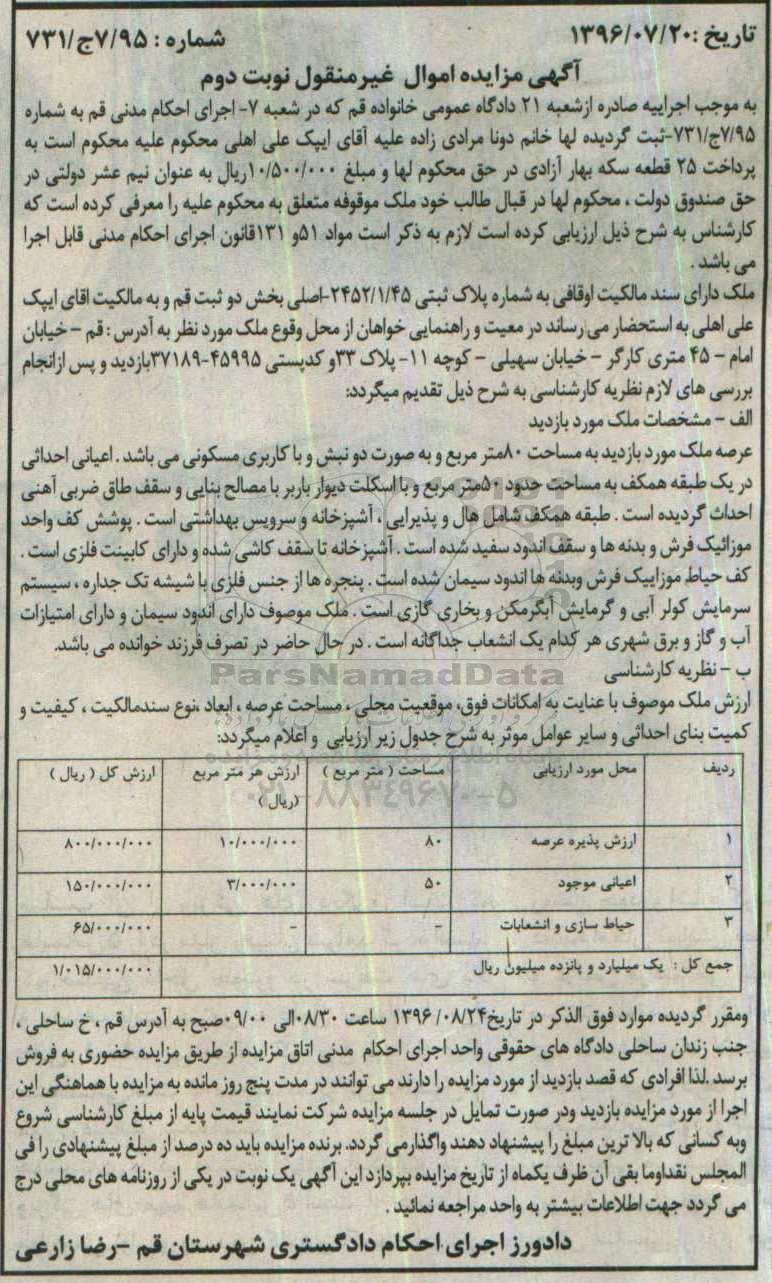 تاریخ :۱۳۹۶/۰۷/۲۰ شماره : ۷/۹۵ج/۷۳۱
آگهی مزایده اموال غیرمنقول نوبت دوم
به موجب اجراییه صادره ازشعبه ۲۱ دادگاه عمومی خانواده قم که در شعبه ۷- اجرای احکام مدنی قم به شماره
۷/۹۵ج/۷۳۱-ثبت گردیده لها خانم دونا مرادی زاده علیه آقای ایپک علی اهلی محکوم علیه محکوم است به
پرداخت ۲۵ قطعه سکه بهار آزادی در حق محکوم لها و مبلغ ۱۰/۵۰۰/۰۰۰ریال به عنوان نیم عشر دولتی در
حق صندوق دولت ، محکوم لها در قبال طالب خود ملک موقوفه متعلق به محکوم علیه را معرفی کرده است که
کارشناس به شرح ذیل ارزیابی کرده است لازم به ذکر است مواد ۵۱و ۱۳۱قانون اجرای احکام مدنی قابل اجرا
می باشد .
ملک دارای سند مالکیت اوقافی به شماره پلاک ثبتی ۲۴۵۲/۱/۴۵-اصلی بخش دو ثبت قم و به مالکیت اقای ایپک
علی اهلی به استحضار می رساند در معیت و راهنمایی خواهان از محل وقوع ملک مورد نظر به آدرس : قم – خیابان
امام – ۴۵ متری کارگر – خیابان سهیلی – کوچه ۱۱- پلاک ۳۳و کدپستی ۴۵۹۹۵-۳۷۱۸۹بازدید و پس ازانجام
بررسی های لازم نظریه کارشناسی به شرح ذیل تقدیم میگردد:
الف – مشخصات ملک مورد بازدید
عرصه ملک مورد بازدید به مساحت ۸۰متر مربع و به صورت دو نبش و با کاربری مسکونی می باشد . اعیانی احداثی
در یک طبقه همکف به مساحت حدود ۵۰متر مربع و با اسکلت دیوار باربر با مصالح بنایی و سقف طاق ضربی آهنی
احداث گردیده است . طبقه همکف شامل هال و پذیرایی ، آشپزخانه و سرویس بهداشتی است . پوشش کف واحد
موزائیک فرش و بدنه ها و سقف اندود سفید شده است . آشپزخانه تا سقف کاشی شده و دارای کابینت فلزی است .
کف حیاط موزاییک فرش وبدنه ها اندود سیمان شده است . پنجره ها از جنس فلزی با شیشه تک جداره ، سیستم
سرمایش کولر آبی و گرمایش آبگرمکن و بخاری گازی است . ملک موصوف دارای اندود سیمان و دارای امتیازات
آب و گاز و برق شهری هر کدام یک انشعاب جداگانه است . در حال حاضر در تصرف فرزند خوانده می باشد.
ب – نظریه کارشناسی
ParsNamadData
ارزش ملک موصوف با عنایت به امکانات فوق، موقعیت محلی ، مساحت عرصه ، ابعاد ،نوع سندمالکیت ، کیفیت و
کمیت بنای احداثی و سایر عوامل موثر به شرح جدول زیر ارزیابی و اعلام میگردد:
ردیف محل مورد ارزیابی مساحت ( متر مربع ) ارزش هر متر مربع (ریال) ارزش کل ( ریال )
۰۲۱-۸۸۳۴۹۶۷۰-۵
۱ ارزش پذیره عرصه ۸۰ ۱۰/۰۰۰/۰۰۰ ۸۰۰/۰۰۰/۰۰۰
۲ اعیانی موجود ۵۰ ۳/۰۰۰/۰۰۰ ۱۵۰/۰۰۰/۰۰۰
۳ حیاط سازی و انشعابات - - ۶۵/۰۰۰/۰۰۰
جمع کل : یک میلیارد و پانزده میلیون ریال ۱/۰۱۵/۰۰۰/۰۰۰
ومقرر گردیده موارد فوق الذکر در تاریخ۱۳۹۶/۰۸/۲۴ ساعت ۰۸/۳۰الی ۰۹/۰۰صبح به آدرس قم ، خ ساحلی ،
جنب زندان ساحلی دادگاه های حقوقی واحد اجرای احکام مدنی اتاق مزایده از طریق مزایده حضوری به فروش
برسد .لذا افرادی که قصد بازدید از مورد مزایده را دارند می توانند در مدت پنج روز مانده به مزایده با هماهنگی این
اجرا از مورد مزایده بازدید ودر صورت تمایل در جلسه مزایده شرکت نمایند قیمت پایه از مبلغ کارشناسی شروع
وبه کسانی که بالا ترین مبلغ را پیشنهاد دهند واگذارمی گردد. برنده مزایده باید ده درصد از مبلغ پیشنهادی را فی
المجلس نقداوما بقی آن ظرف یکماه از تاریخ مزایده بپردازد این آگهی یک نوبت در یکی از روزنامه های محلی درج
می گردد جهت اطلاعات بیشتر به واحد مراجعه نمائید .
دادورز اجرای احکام دادگستری شهرستان قم –رضا زارعی